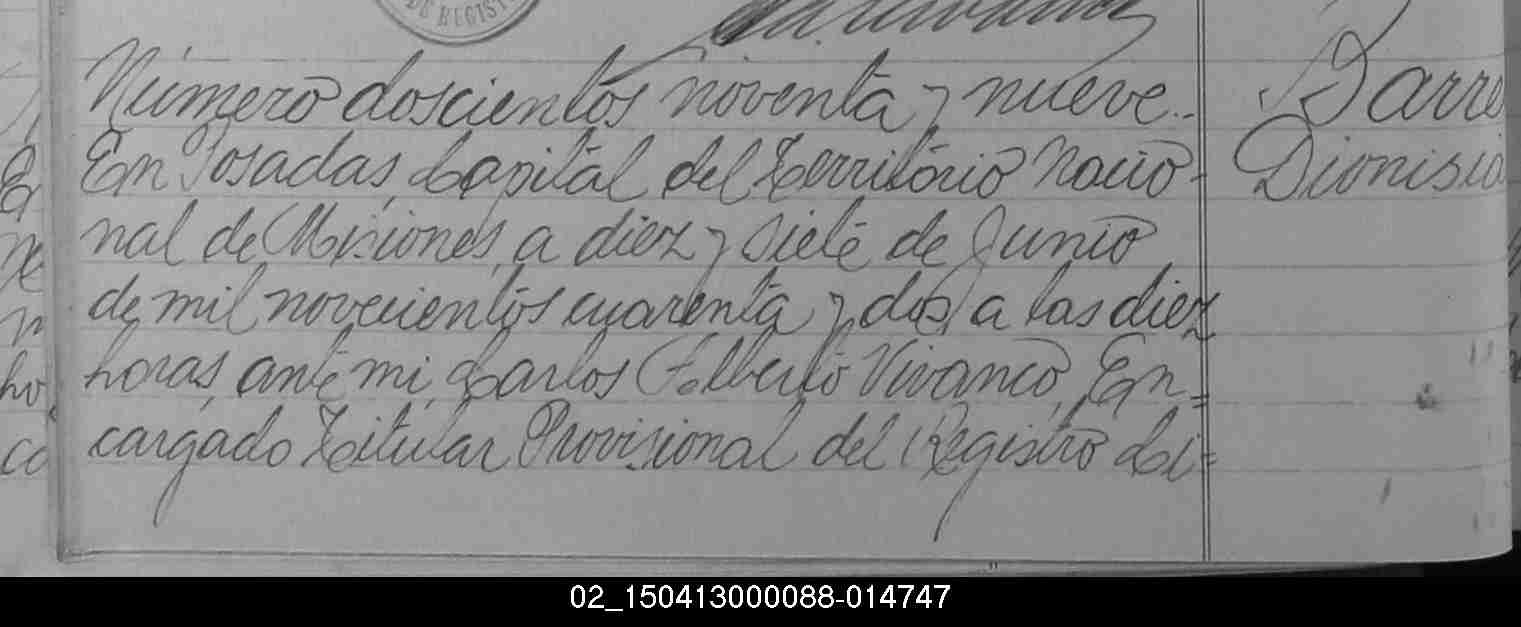 DE REGIST
Número doscientos noventa y nueve..
En Posadas, Capital del Território Nacio-
nal de Misiones, a diez y siete de Junio
de mil novecientos cuarenta y dos, a las diez
horas, ante mi, Carlos Alberto Vivanco, En=
cargado Titular Provisional del Registro Ci=
Barre
Dionisio
02_150413000088-014747